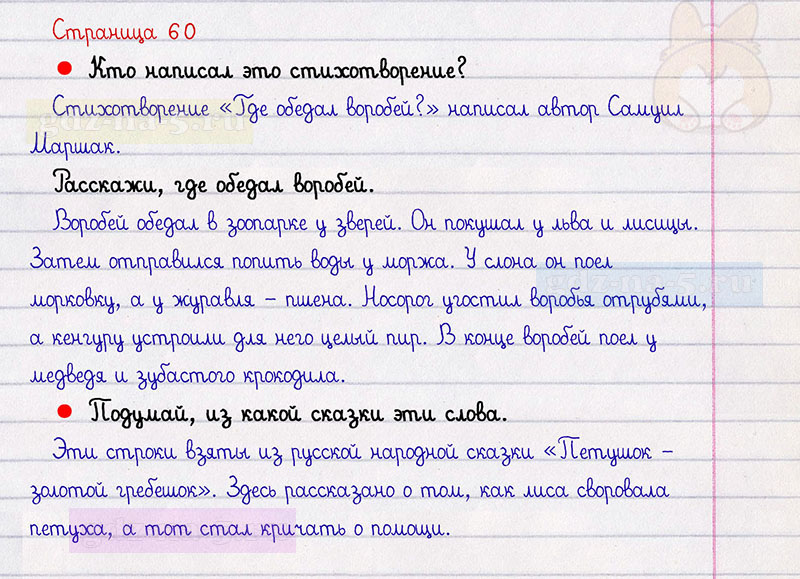 Страница 60
Кто написал это стихотворение?
Стихотворение «Где обедал воробей?» написал автор Самуил
Маршак.
Расскажи, где обедал воробей.
Воробей обедал в зоопарке у зверей. Он покушал у льва и лисицы.
Затем отправился попить воды у моржа. У слона он поел
морковку, а у журавля – пшена. Носорог угостил воробья отрубями,
а кенгуру устроили для него целый пир. В конце воробей поел у
медведя и зубастого крокодила.
Подумай, из какой сказки эти слова.
Эти строки взяты из русской народной сказки «Петушок –
золотой гребешок». Здесь рассказано о том, как лиса своровала
петуха, а тот стал кричать о помощи.